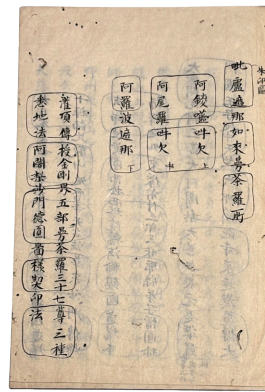 毗盧遮那如来曼荼羅所
阿鍐嚂吽欠 上
阿尾羅吽欠 中
阿羅波遮那 下
灌頂傳授金剛界五部曼荼羅三十七尊三種
悉地法阿闍梨沙門德圓圖樣契印法